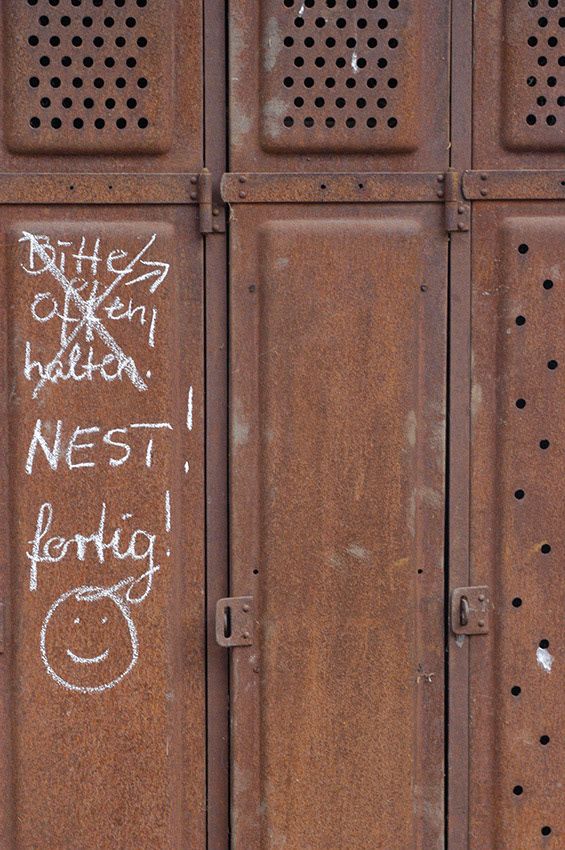 Bitte
offen
halten.
NEST!
fertig!